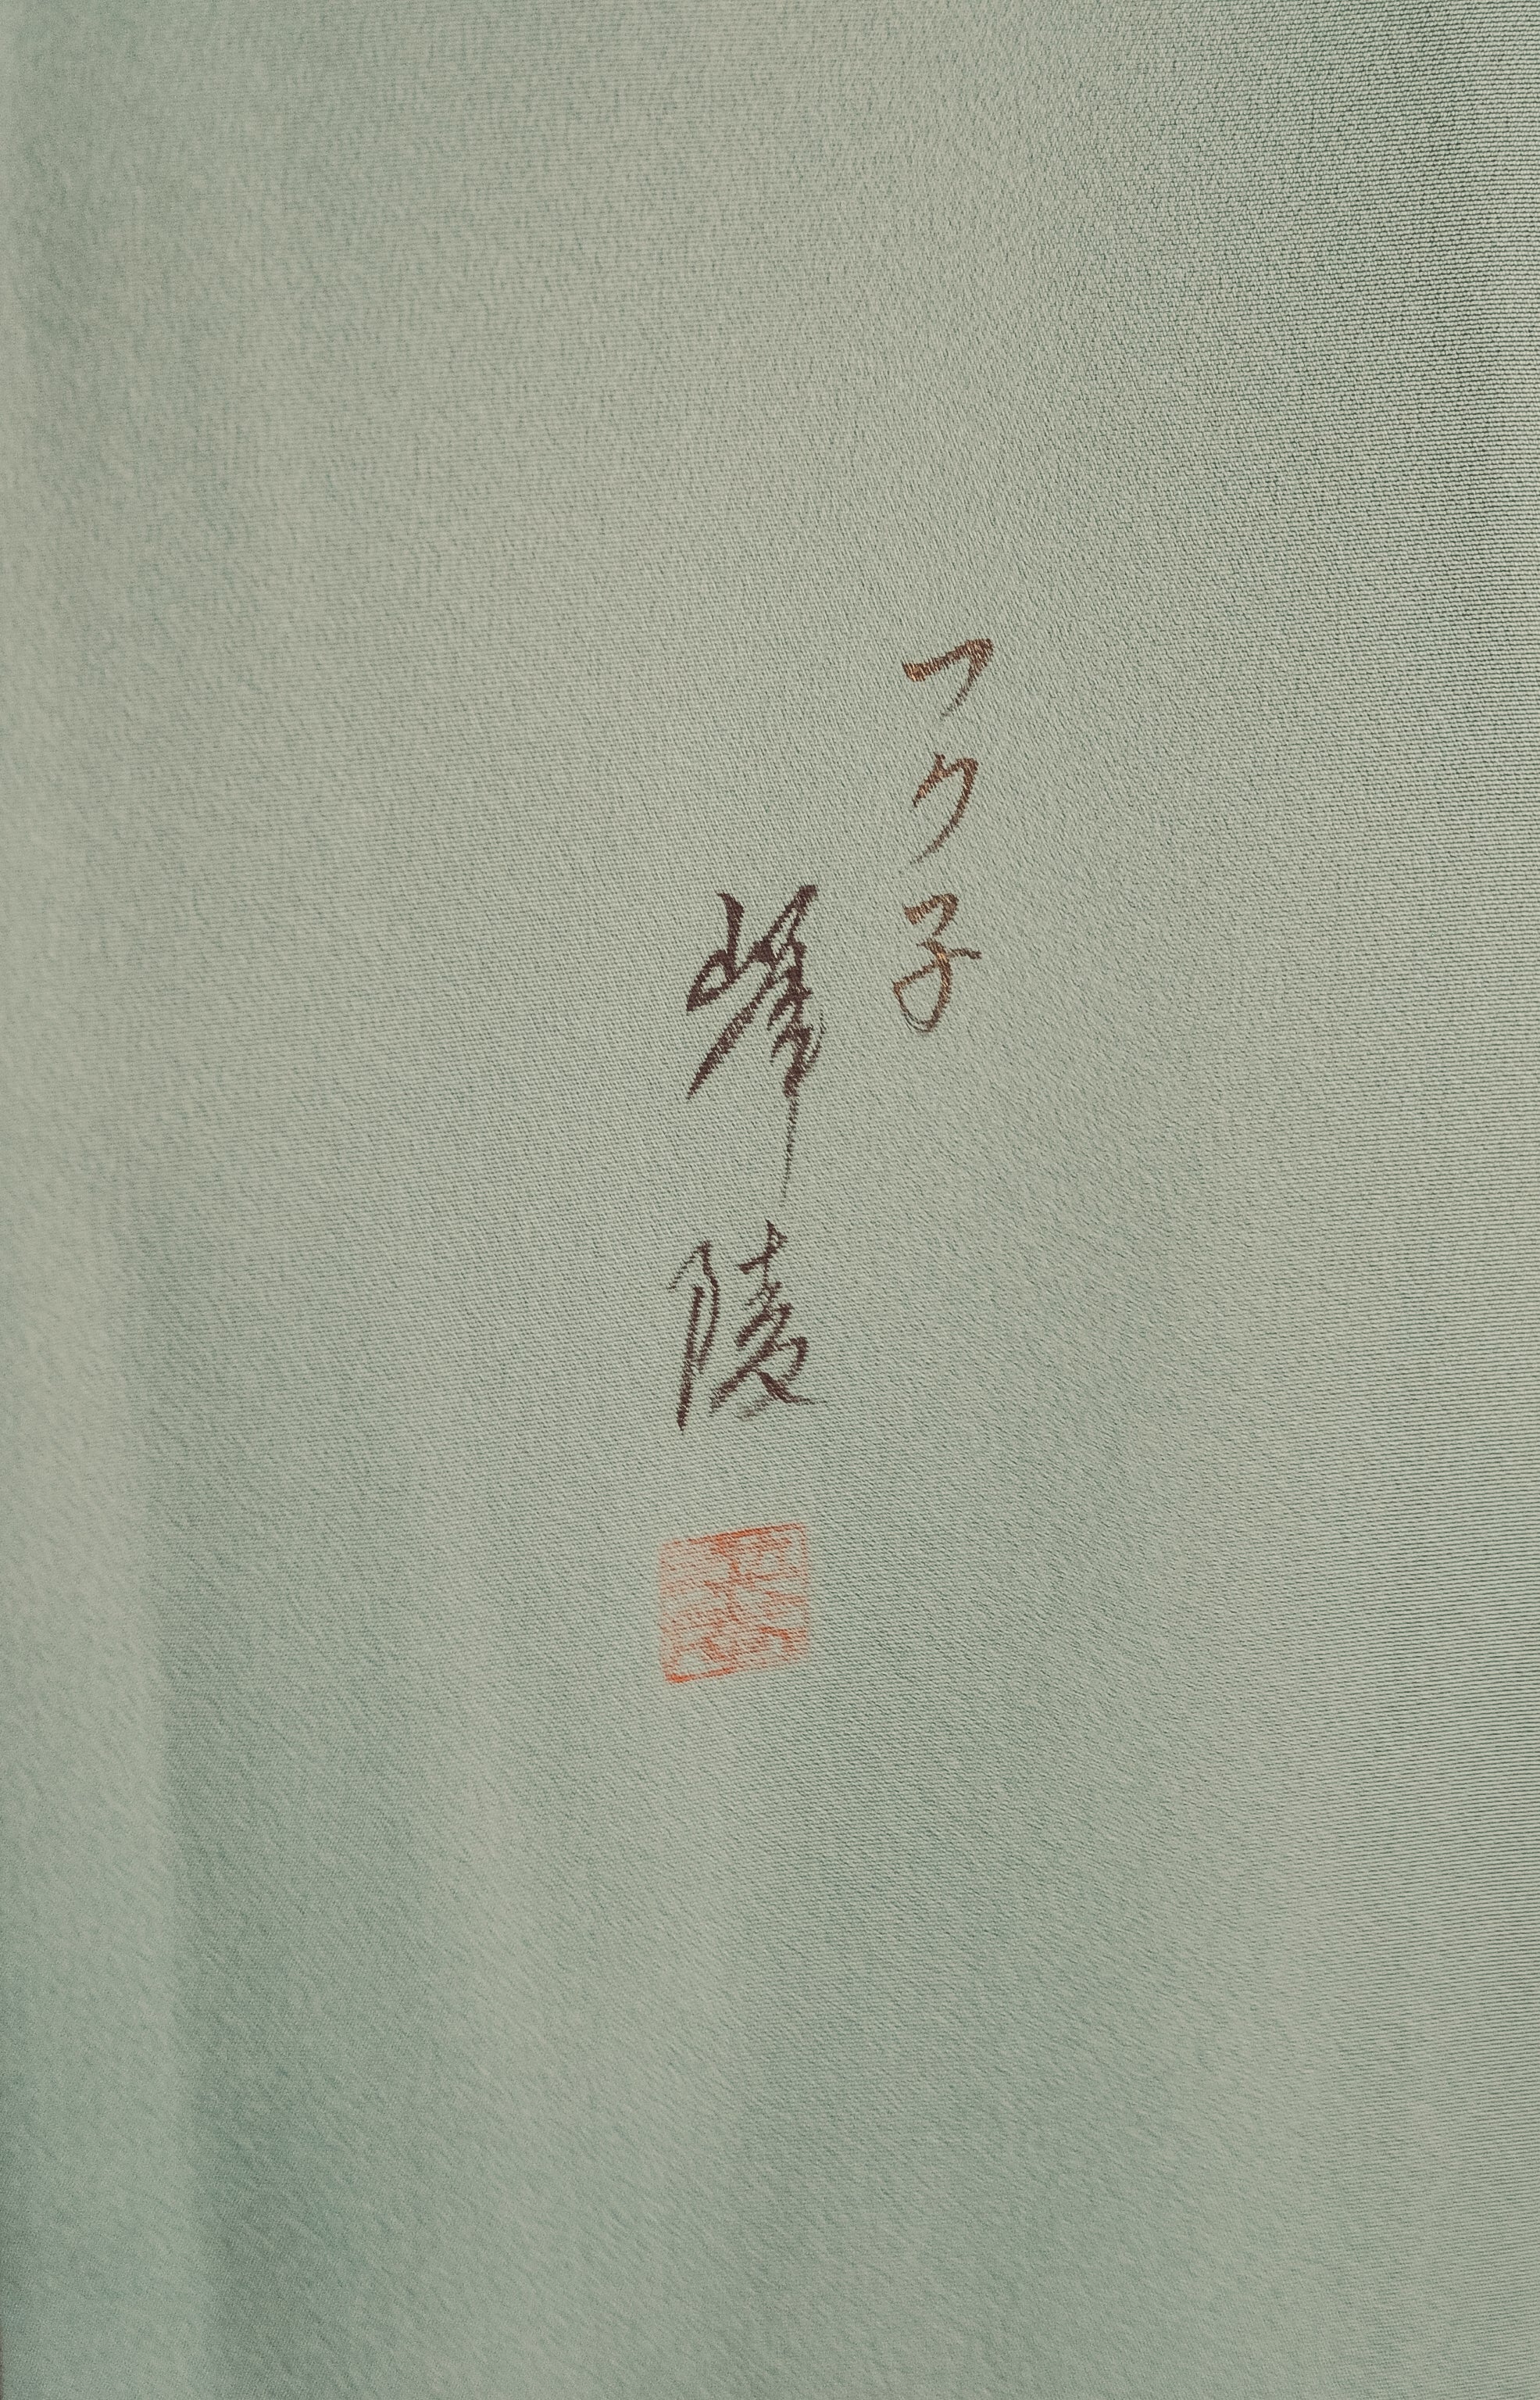 フク子
峰陵